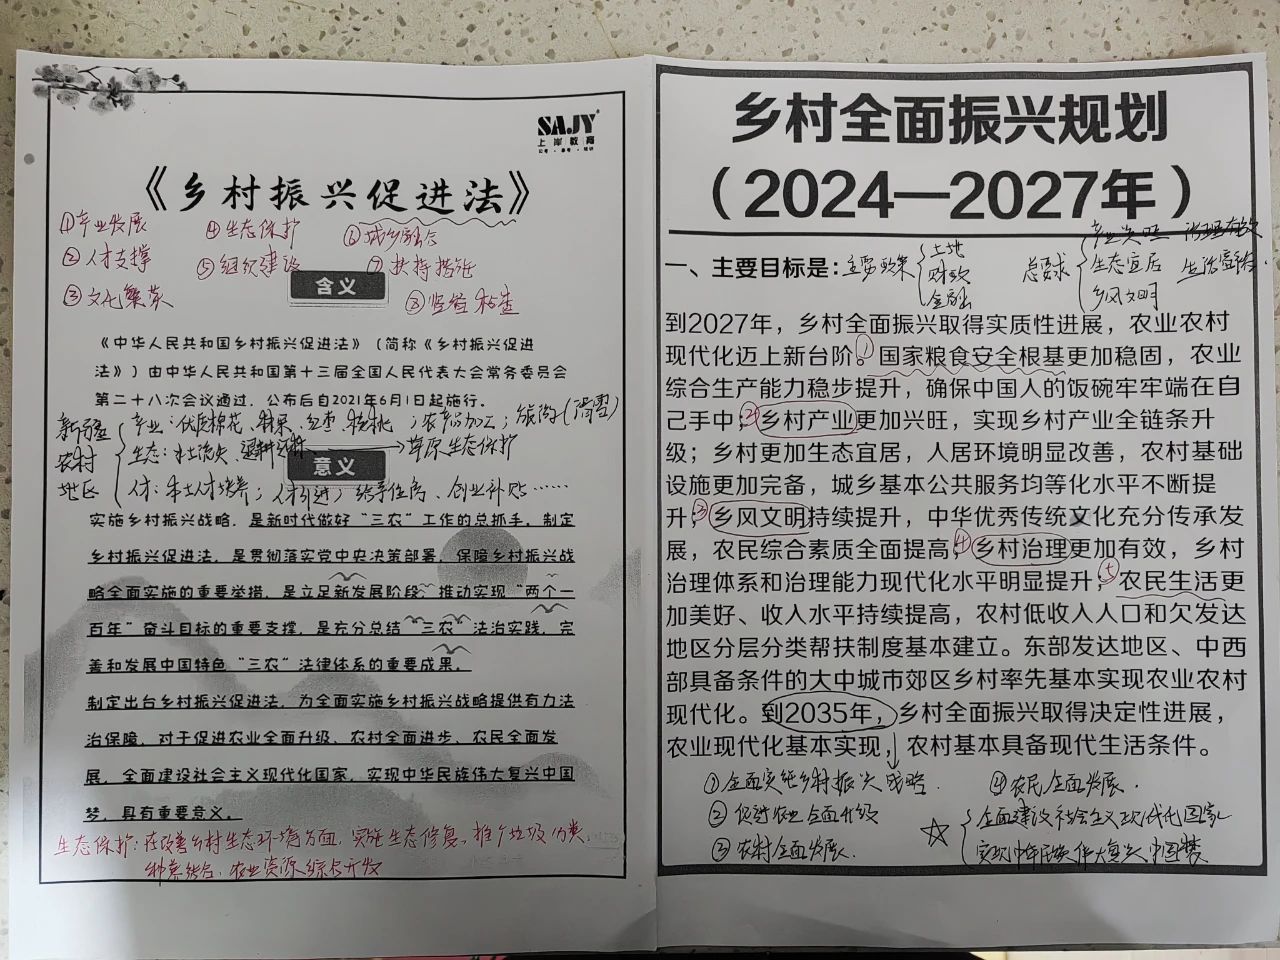 SAJY
上岸教育
《乡村振兴促进法》
①产业发展 ④生态保护 ⑥城乡融合
②人才支撑 ⑤组织建设 ⑦扶持措施
③文化繁荣 ⑧监督检查
含义
《中华人民共和国乡村振兴促进法》（简称《乡村振兴促进
法》）由中华人民共和国第十三届全国人民代表大会常务委员会
第二十八次会议通过，公布后自2021年6月1日起施行。
新疆 产业：优质棉花、林果、红枣、核桃；农产品加工；旅游（滑雪）
农村 生态：水土流失、退耕还林 草原生态保护
地区 人才：本土人才培养；人才引进；给予住房、创业补贴……
意义
实施乡村振兴战略，是新时代做好“三农”工作的总抓手。制定
乡村振兴促进法，是贯彻落实党中央决策部署，保障乡村振兴战
略全面实施的重要举措，是立足新发展阶段，推动实现“两个一
百年”奋斗目标的重要支撑，是充分总结“三农”法治实践，完
善和发展中国特色“三农”法律体系的重要成果。
制定出台乡村振兴促进法，为全面实施乡村振兴战略提供有力法
治保障，对于促进农业全面升级、农村全面进步、农民全面发
展，全面建设社会主义现代化国家，实现中华民族伟大复兴中国
梦，具有重要意义。
生态保护：在改善乡村生态环境方面，实施生态修复。推广垃圾分类、
种养结合、农业资源综合开发
乡村全面振兴规划
（2024—2027年）
一、主要目标是：主要政策 土地 财政 金融
总要求 产业兴旺 治理有效 生态宜居 生活富裕. 乡风文明
到2027年，乡村全面振兴取得实质性进展，农业农村
现代化迈上新台阶。①国家粮食安全根基更加稳固，农业
综合生产能力稳步提升，确保中国人的饭碗牢牢端在自
己手中；②乡村产业更加兴旺，实现乡村产业全链条升
级；乡村更加生态宜居，人居环境明显改善，农村基础
设施更加完备，城乡基本公共服务均等化水平不断提
升；③乡风文明持续提升，中华优秀传统文化充分传承发
展，农民综合素质全面提高；④乡村治理更加有效，乡村
治理体系和治理能力现代化水平明显提升；⑤农民生活更
加美好、收入水平持续提高，农村低收入人口和欠发达
地区分层分类帮扶制度基本建立。东部发达地区、中西
部具备条件的大中城市郊区乡村率先基本实现农业农村
现代化。到2035年，乡村全面振兴取得决定性进展，
农业现代化基本实现，农村基本具备现代生活条件。
①全面实施乡村振兴战略. ④农民全面发展.
②促进农业全面升级 全面建设社会主义现代化国家
③农村全面发展. 实现中华民族伟大复兴中国梦